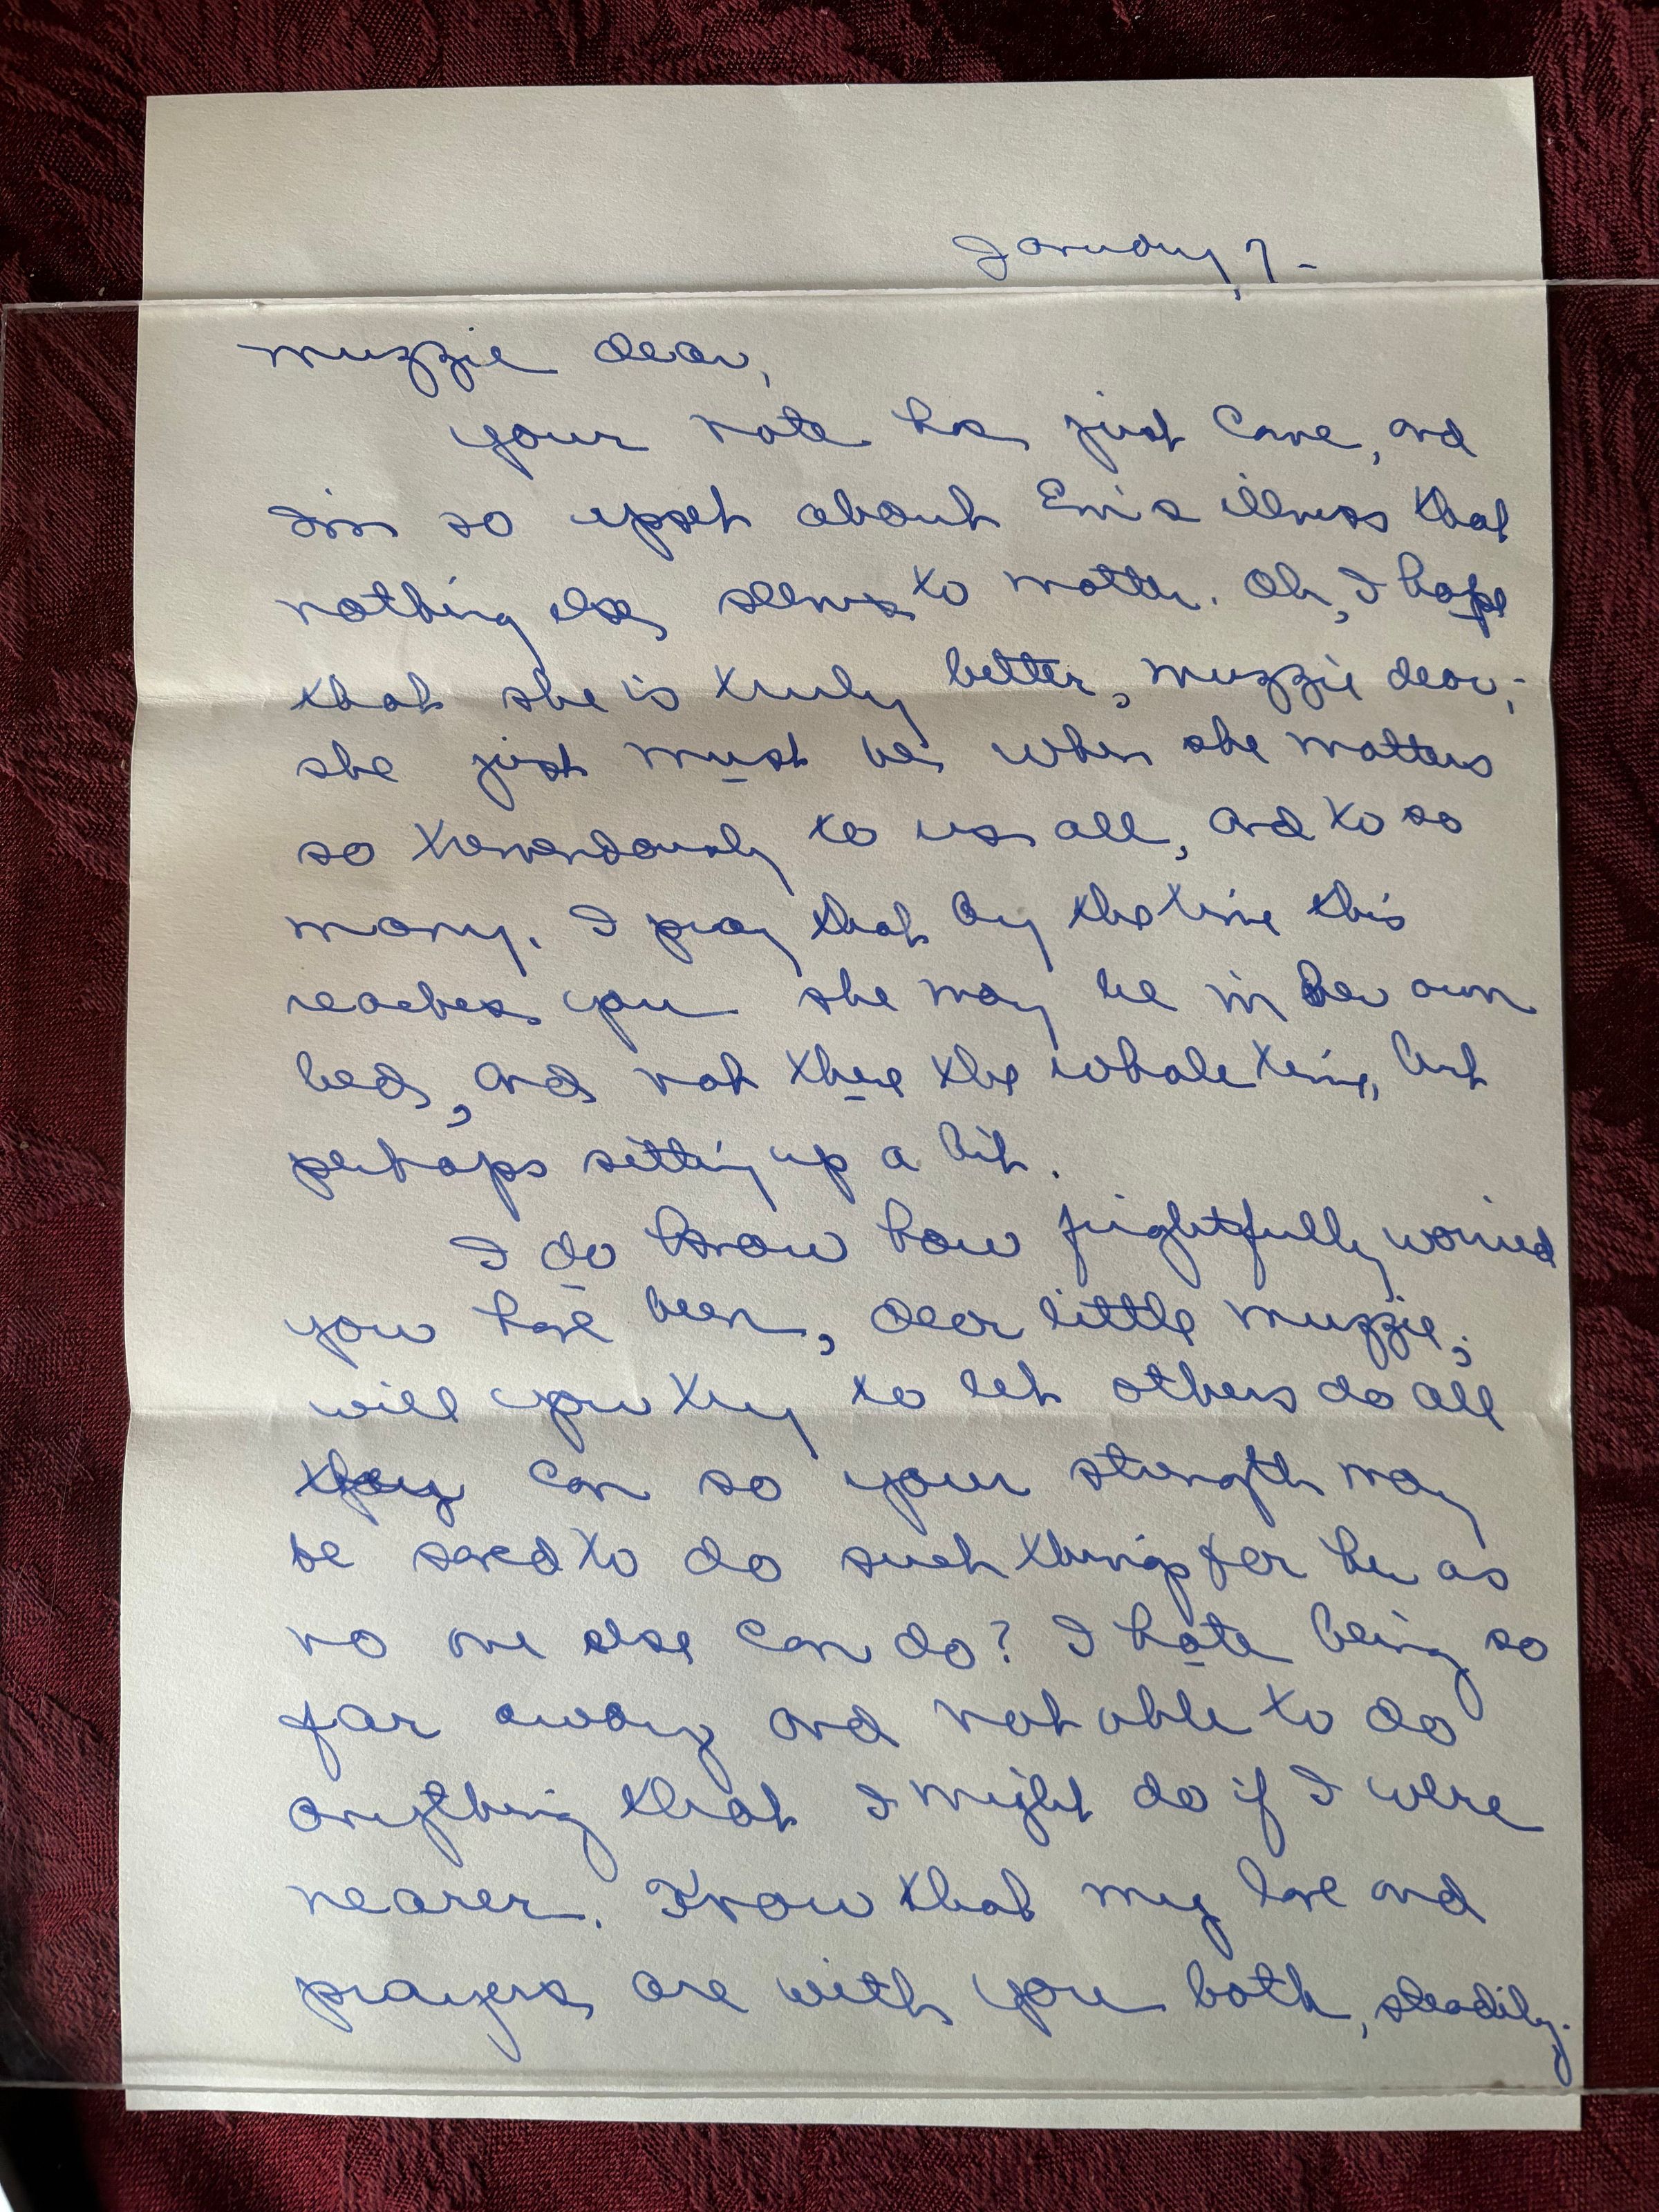 January 7 -
Muzzie dear,
Your note has just come, and
I'm so upset about Em's illness that
nothing else seems to matter. Oh, I hope
that she is truly better, Muzzie dear;
she just must be, when she matters
so tremendously to us all, and to so
many. I pray that by the time this
reaches you she may be in her own
bed, and not there the whole time, but
perhaps sitting up a bit.
I do know how frightfully worried
you have been, dear little Muzzie;
will you try to let others do all
they can so your strength may
be saved to do such things for her as
no one else can do? I hate being so
far away and not able to do
anything that I might do if I were
nearer. Know that my love and
prayers are with you both, steadily.